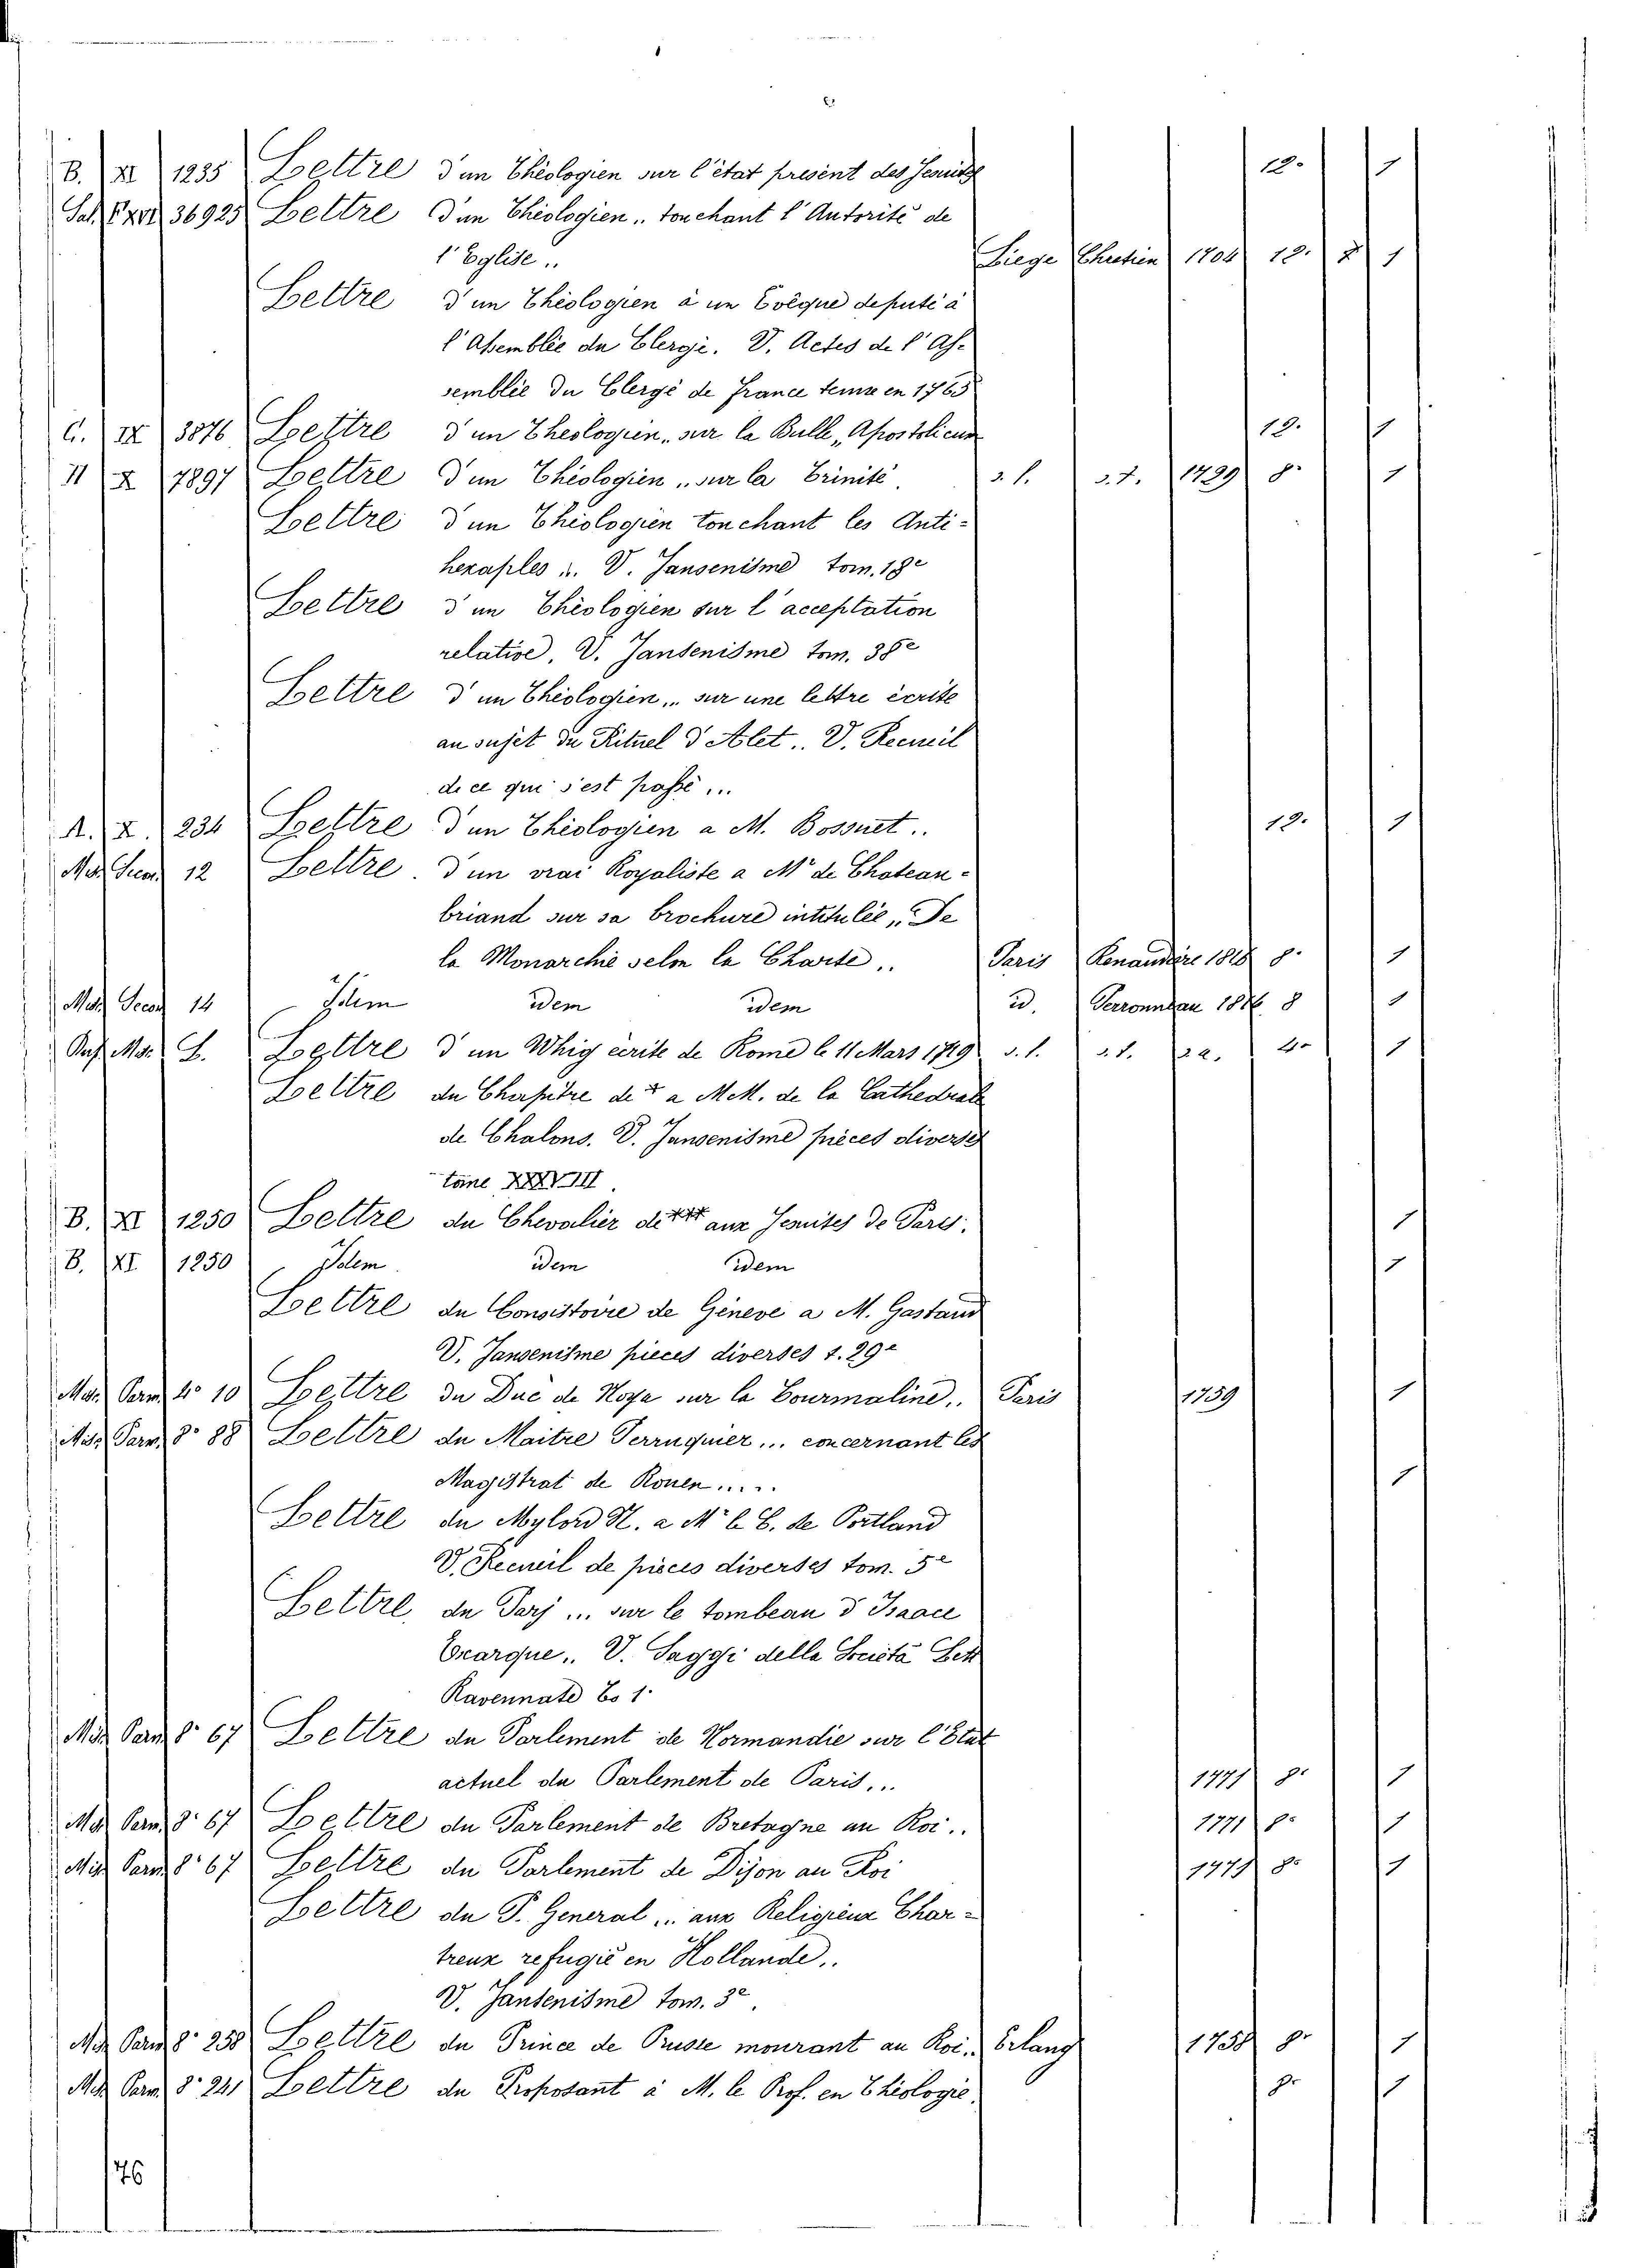 B. XI 1235 Lettre d'un Théologien sur l'état présent des Jesuites 12. 1
Sal. E XVI 36925 Lettre d'un Théologien.. touchant l'Autorité de
l'Eglise.. Liege Chretien 1704 12. 1
Lettre d'un Théologien à un Evêque deputé à
l'Assemblée du Clergé. V. Actes de l'As-
semblée du Clergé de France tenue en 1765
C. IX 3876 Lettre d'un Theologien.. sur la Bulle „Apostolicum 12. 1
II X 7897 Lettre d'un Théologien .. sur la Trinité. s. l. s. t. 1729 8. 1
Lettre d'un Théologien touchant les Anti-
hexaples .. V. Jansenisme tom. 18e
Lettre d'un Théologien sur l'acceptation
relative, V. Jansenisme tom. 38e
Lettre d'un Théologien... sur une lettre écrite
au sujet du Rituel d'Alet.. V. Recueil
de ce qui s'est passé...
A. X. 234 Lettre d'un Théologien a M. Bossuet.. 12. 1
12 Lettre d'un vrai Royaliste a Mr de Chateau-
briand sur sa brochure intitulée „De
la Monarchie selon la Charte.. Paris Renaudiere 8. 1
14 Idem idem idem id. Perronneau 8 1
L. Lettre d'un Whig écrite de Rome le 11 Mars 1719 s. l. s. t. s. a. 4o 1
Lettre du Chapitre de * a MM. de la Cathedrale
de Chalons. V. Jansenisme pièces diverses
tome XXXVIII.
B. XI 1250 Lettre du Chevalier de *** aux Jesuites de Paris. 1
B. XI 1250 Idem idem idem 1
Lettre du Consistoire de Géneve a M. Gastaud
V. Jansenisme pieces diverses t. 29e
4o 10 Lettre du Duc de Noya sur la Tourmaline.. Paris 1759 1
8o 88 Lettre du Maitre Perruquier... concernant les
Magistrat de Rouen..... 1
Lettre du Mylord H. a Mr le C. de Portland
V. Recueil de pièces diverses tom. 5e
Lettre du Parj ... sur le tombeau d'Isaace
Exarque.. V. Saggi della Società Lett
Ravennate To 1.
8o 67 Lettre du Parlement de Normandie sur l'Etat
actuel du Parlement de Paris... 1771 8. 1
8o 67 Lettre du Parlement de Bretagne au Roi.. 1771 8. 1
8o 67 Lettre du Parlement de Dijon au Roi 1771 8o 1
Lettre du P. General ... aux Religieux Char-
treux refugié en Hollande..
V. Jansenisme tom. 3e.
8o 258 Lettre du Prince de Prusse mourant au Roi.. Erlang 1758 8. 1
8o 241 Lettre du Proposant à M. le Prof. en Théologie. 8. 1
76